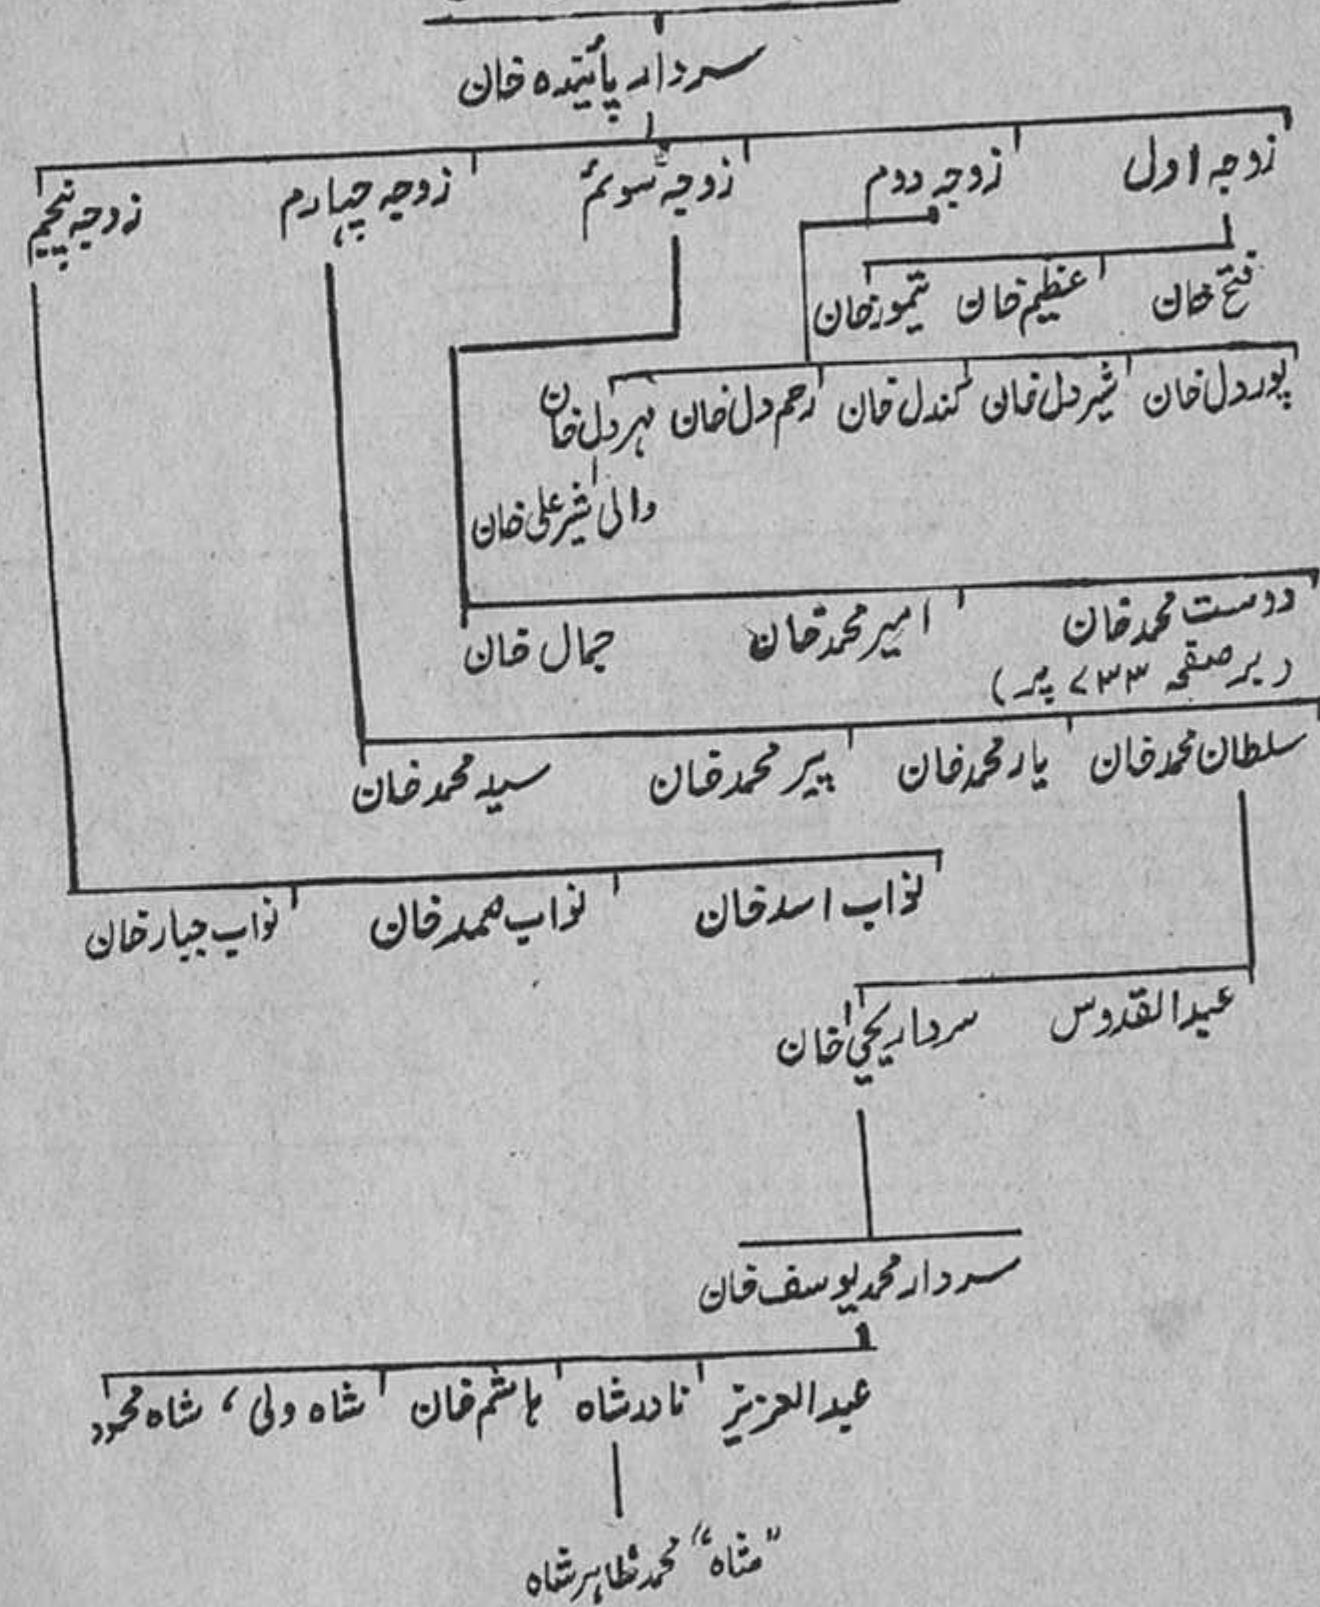 سردار پائیندہ خان
زوجہ اول زوجہ دوم زوجہ سوئم زوجہ چہارم زوجہ پنجم
فتح خان عظیم خان تیمور خان
پور دل خان شیر دل خان کندل خان رحم دل خان مہر دل خان
والی شیر علی خان
دوست محمد خان امیر محمد خان جمال خان
(بر صفحہ ۷۳۳ پر)
سلطان محمد خان یار محمد خان پیر محمد خان سید محمد خان
نواب اسد خان نواب صمد خان نواب جبار خان
عبدالقدوس سردار یحییٰ خان
سردار محمد یوسف خان
عبدالعزیز نادر شاہ ہاشم خان شاہ ولی، شاہ محمود
"شاہ" محمد ظاہر شاہ